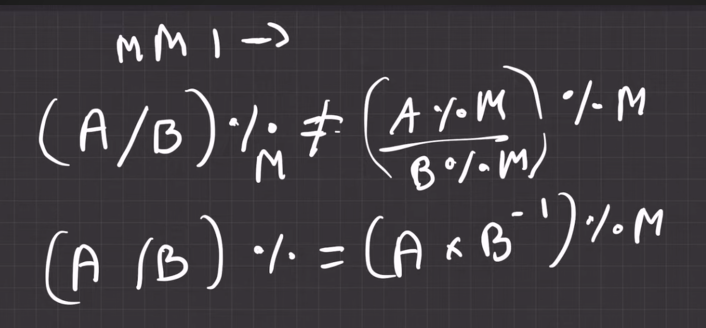 MMI →
(A/B) % M ≠ (A % M / B % M) % M
(A/B) % = (A × B⁻¹) % M